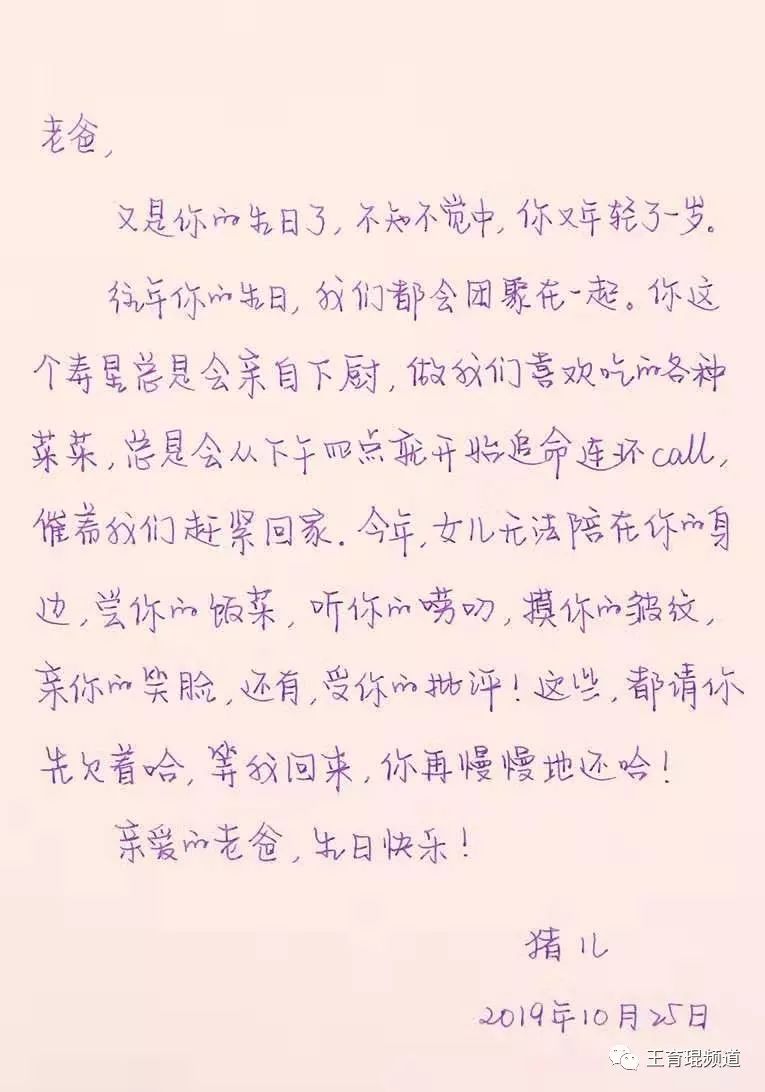 老爸,
又是你的生日了,不知不觉中,你又年轻了一岁。
往年你的生日,我们都会团聚在一起。你这
个寿星总是会亲自下厨,做我们喜欢吃的各种
菜菜,总是会从下午四点就开始追命连环call,
催着我们赶紧回家.今年,女儿无法陪在你的身
边,尝你的饭菜,听你的唠叨,摸你的皱纹,
亲你的笑脸,还有,受你的批评!这些,都请你
先欠着哈,等我回来,你再慢慢地还哈!
亲爱的老爸,生日快乐!
猪儿
2019年10月25日
王育琨频道